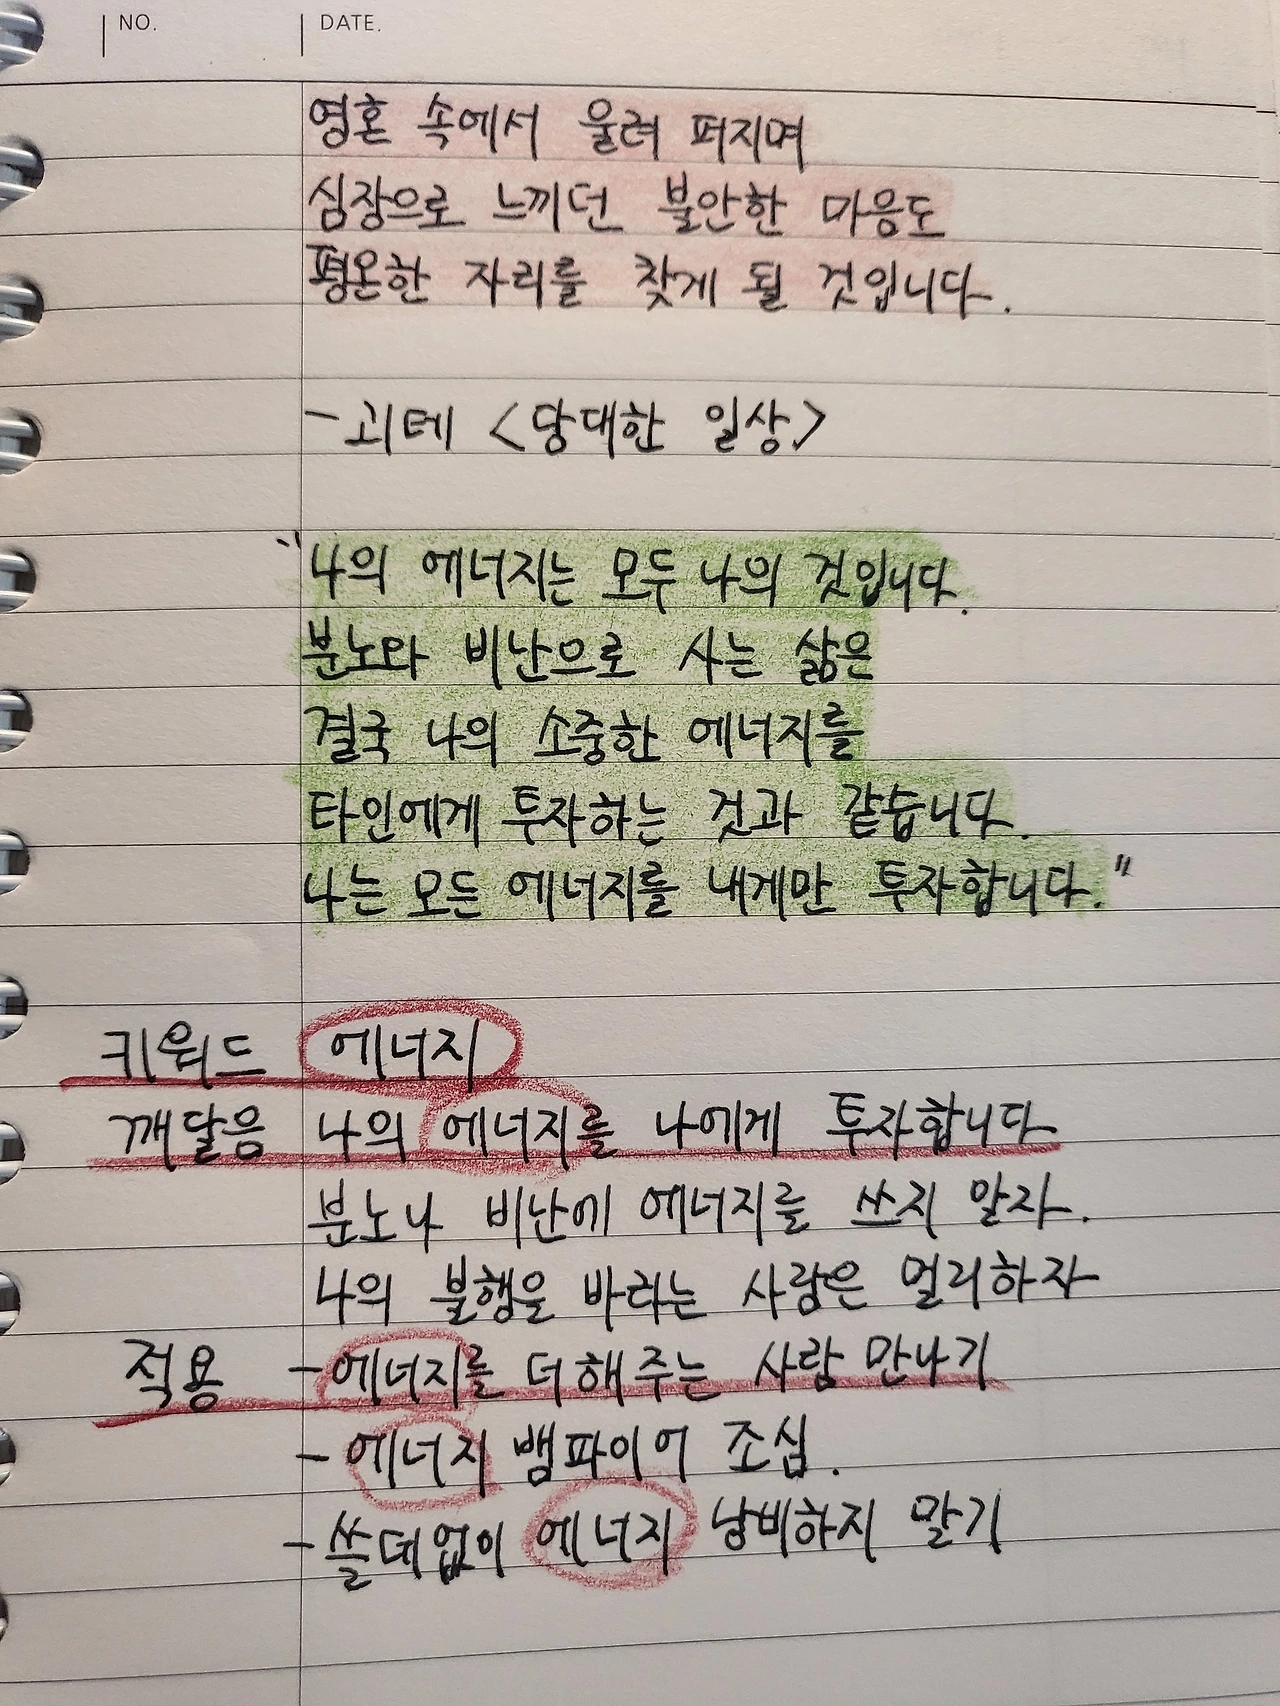 NO. DATE.
영혼 속에서 울려 퍼지며
심장으로 느끼던 불안한 마음도
평온한 자리를 찾게 될 것입니다.
- 괴테 <당대한 일상>
"나의 에너지는 모두 나의 것입니다.
분노와 비난으로 사는 삶은
결국 나의 소중한 에너지를
타인에게 투자하는 것과 같습니다.
나는 모든 에너지를 내게만 투자합니다."
키워드 에너지
깨달음 나의 에너지를 나에게 투자합니다
분노나 비난에 에너지를 쓰지 말자.
나의 불행을 바라는 사람은 멀리하자
적용 - 에너지를 더해주는 사람 만나기
- 에너지 뱀파이어 조심.
- 쓸데없이 에너지 낭비하지 말기